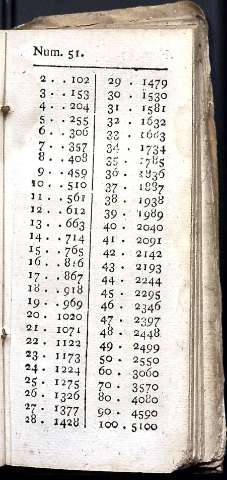 Num. 51.
2 . . 102
3 . . 153
4 . . 204
5 . . 255
6 . . 306
7 . . 357
8 . . 408
9 . . 459
10 . . 510
11 . . 561
12 . . 612
13 . . 663
14 . . 714
15 . . 765
16 . . 816
17 . . 867
18 . . 918
19 . . 969
20 . 1020
21 . 1071
22 . 1122
23 . 1173
24 . 1224
25 . 1275
26 . 1326
27 . 1377
28 . 1428
29 . 1479
30 . 1530
31 . 1581
32 . 1632
33 . 1683
34 . 1734
35 . 1785
36 . 1836
37 . 1887
38 . 1938
39 . 1989
40 . 2040
41 . 2091
42 . 2142
43 . 2193
44 . 2244
45 . 2295
46 . 2346
47 . 2397
48 . 2448
49 . 2499
50 . 2550
60 . 3060
70 . 3570
80 . 4080
90 . 4590
100 . 5100